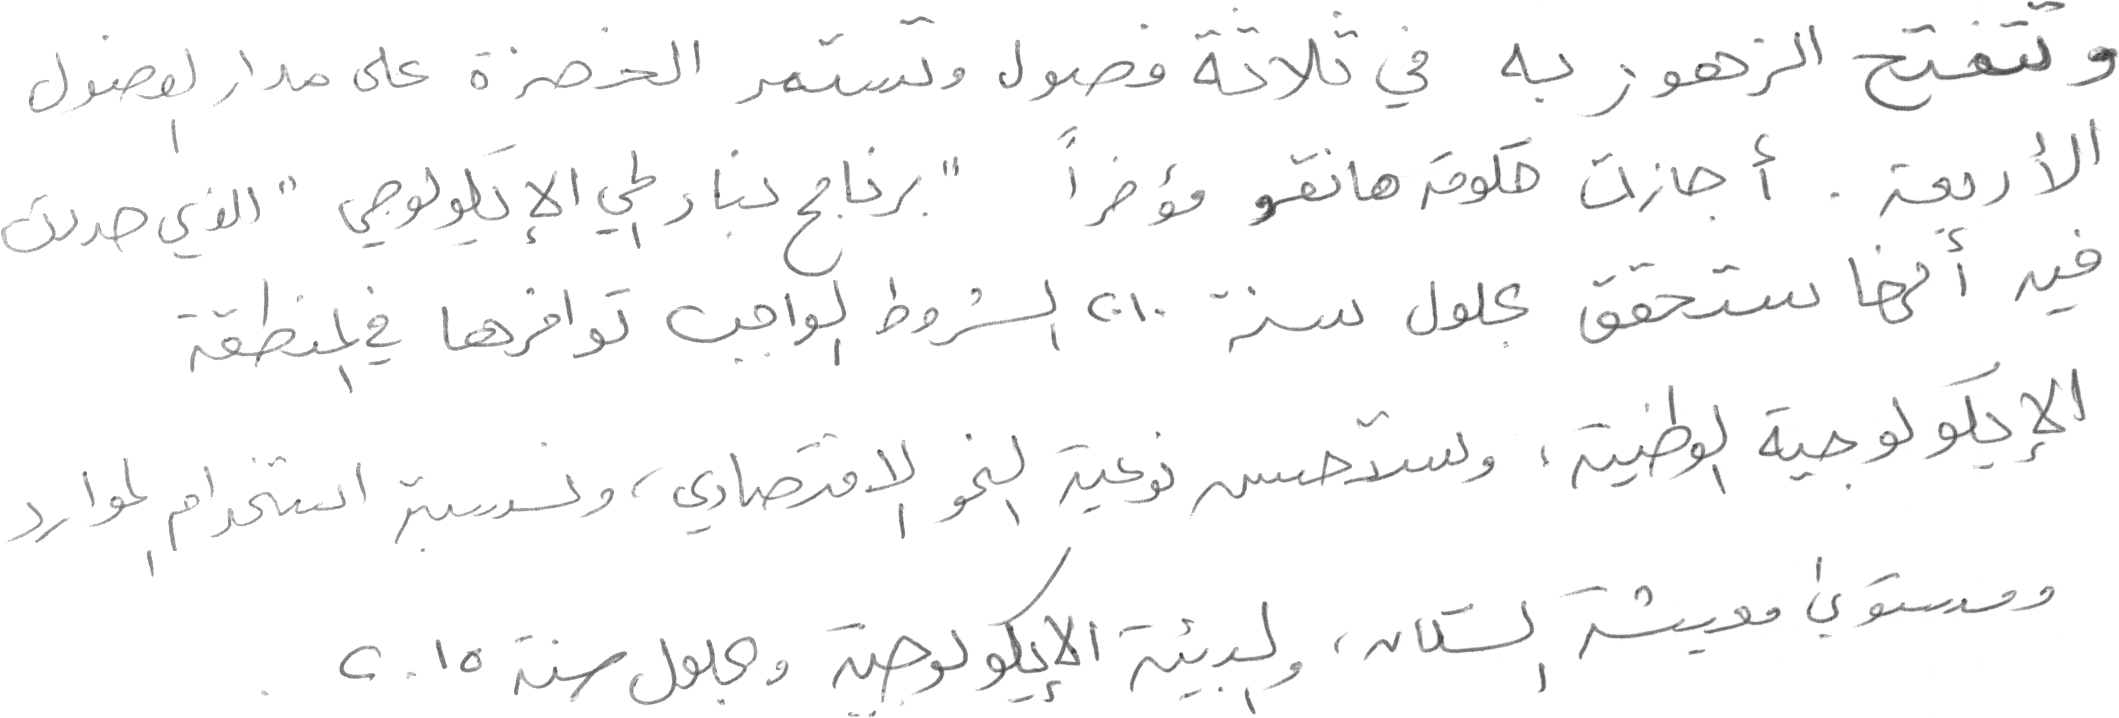 وتتفتح الزهور به في ثلاثة فصول وتستمر الخضرة على مدار الفصول
الأربعة . أجازت حكومة هانقو مؤخراً "برنامج بناء الإيكولوجي" الذي حددت
فيه أنها ستحقق بحلول سنة ٢٠١٠ الشروط الواجب توافرها في المنطقة
الإيكولوجية الوطنية، وستتحسن نوعية النمو الاقتصادي، ونسبة استخدام الموارد
ومستوى معيشة السكان، والبيئة الإيكولوجية وبحلول سنة ٢٠١٥ .